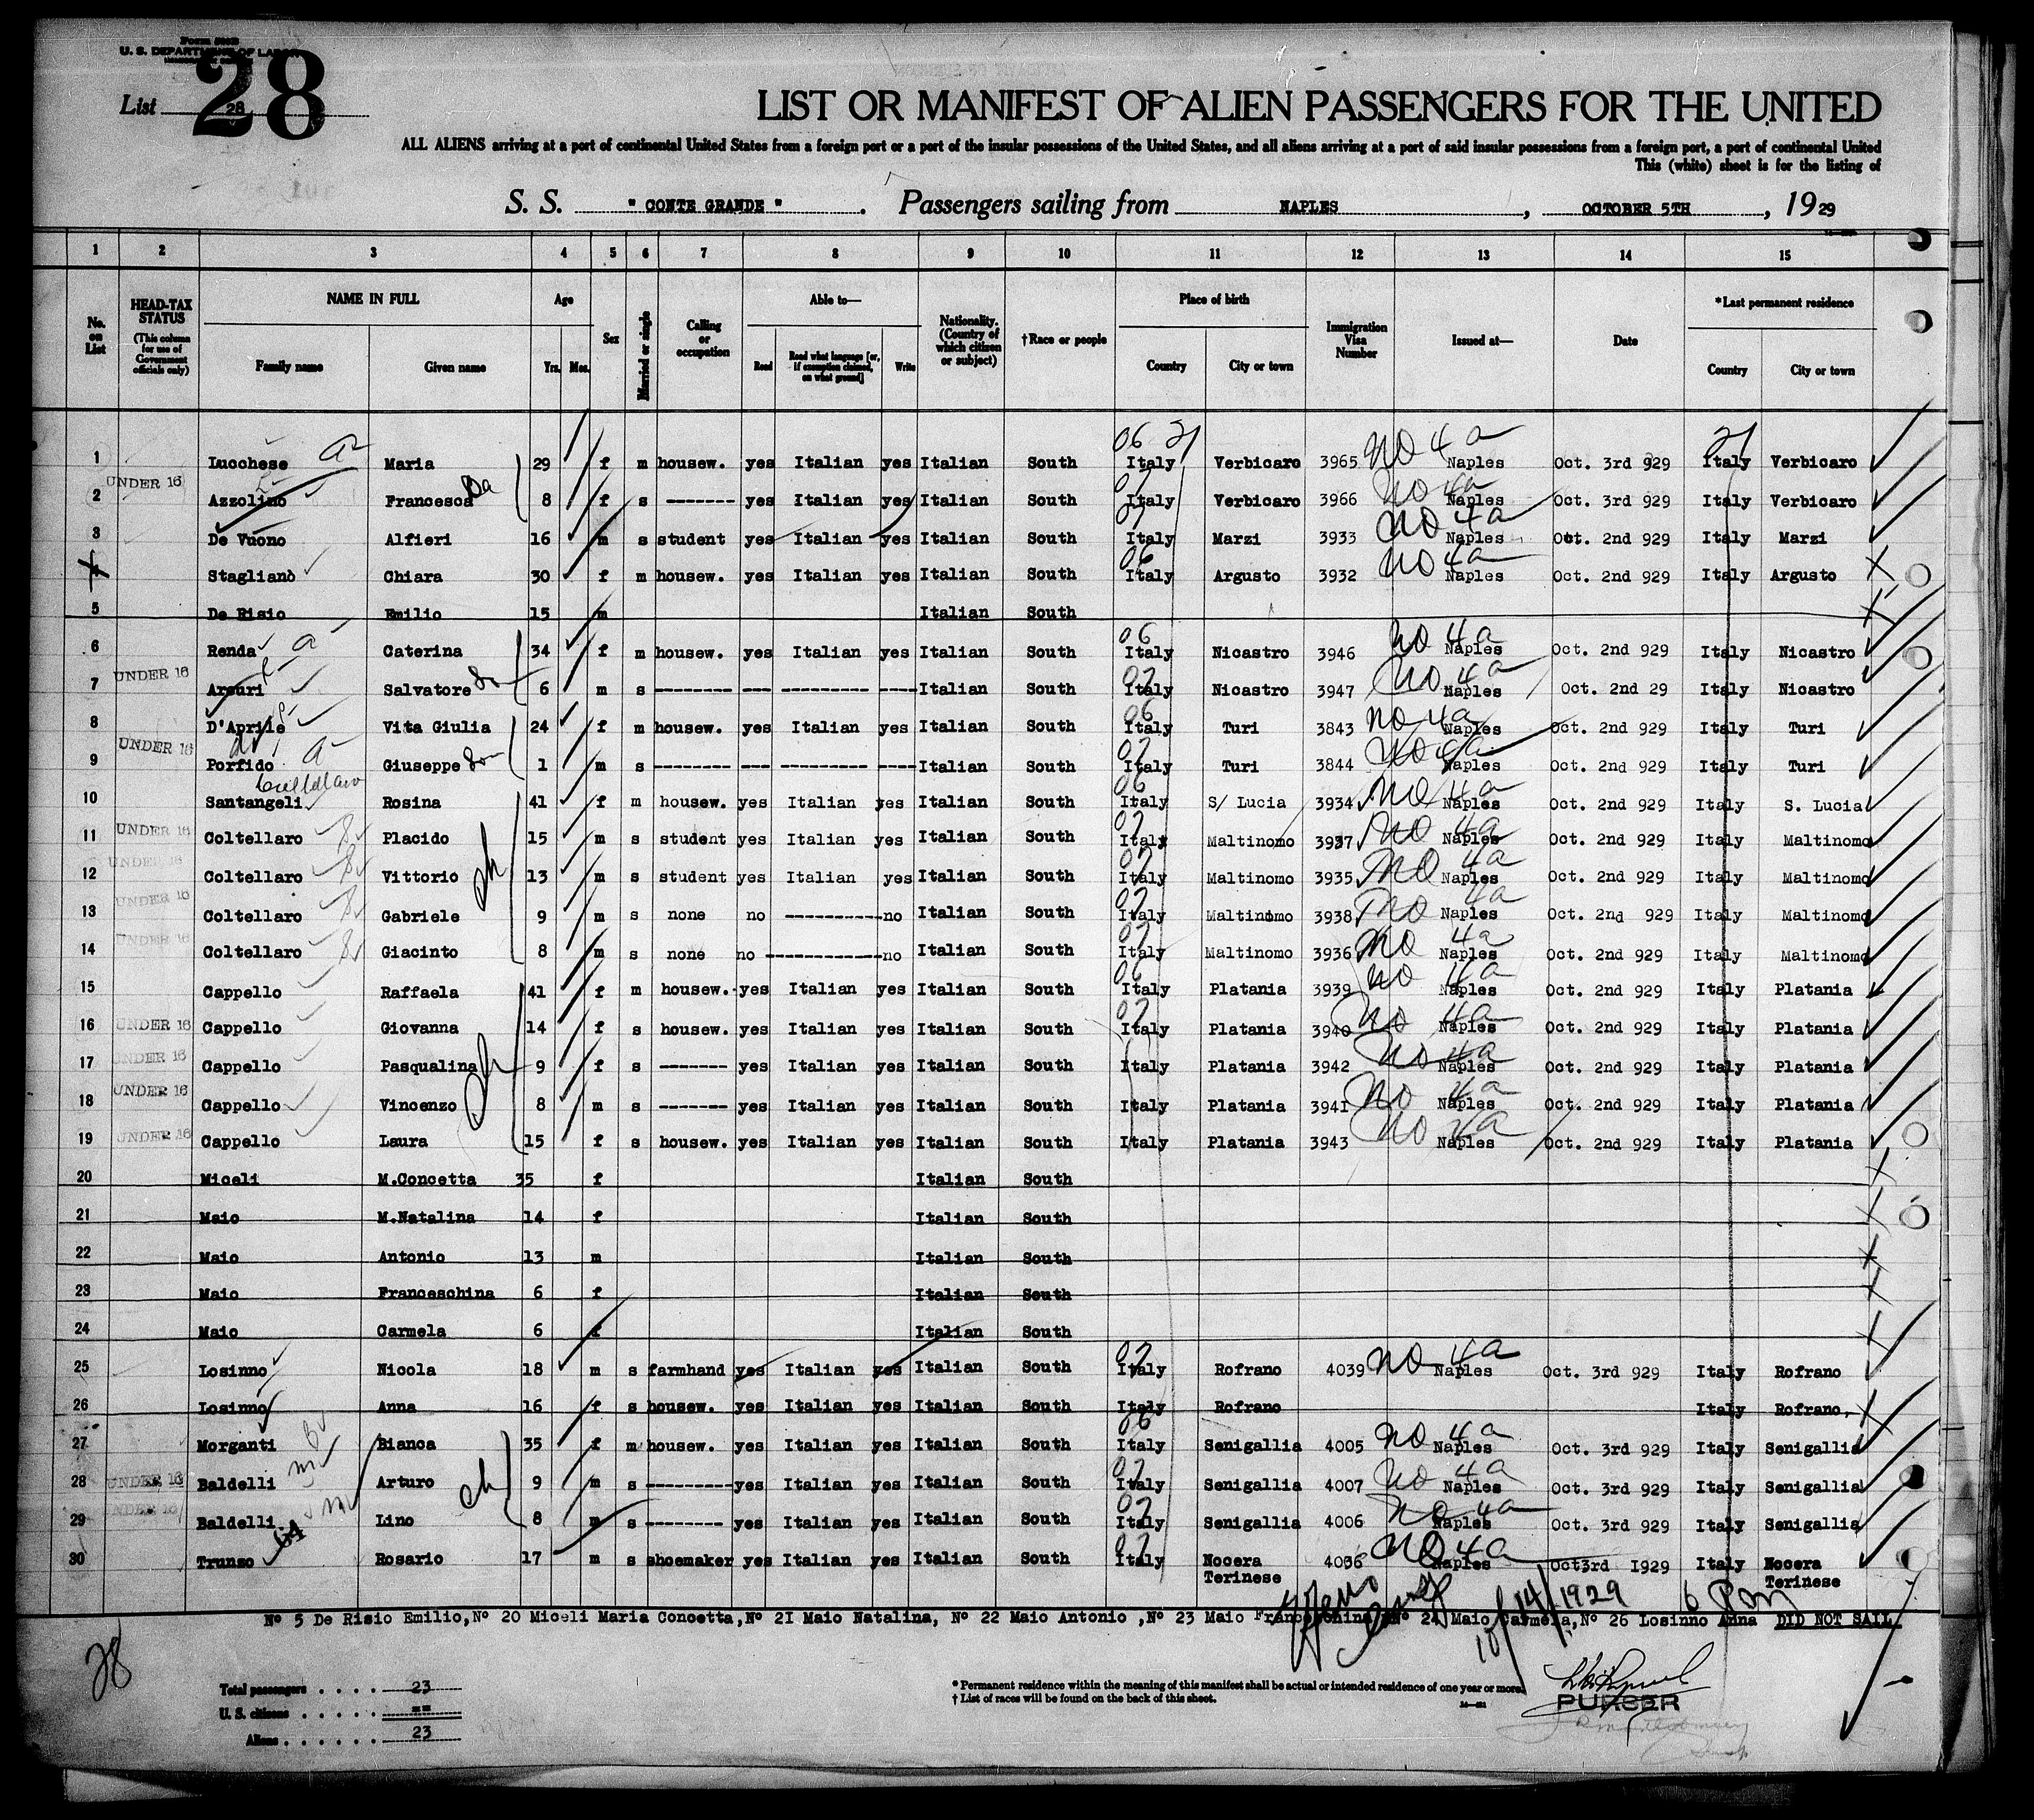 Form 500B
U. S. DEPARTMENT OF LABOR
28
List 28
LIST OR MANIFEST OF ALIEN PASSENGERS FOR THE UNITED
ALL ALIENS arriving at a port of continental United States from a foreign port or a port of the insular possessions of the United States, and all aliens arriving at a port of said insular possessions from a foreign port, a port of continental United
This (white) sheet is for the listing of
S. S. " CONTE GRANDE " . Passengers sailing from NAPLES , OCTOBER 5TH , 19 29
1 2 3 4 5 6 7 8 9 10 11 12 13 14 15
No. on List HEAD-TAX STATUS (This column for use of Government officials only) NAME IN FULL Family name Given name Age Yrs. Mos. Sex Married or single Calling or occupation Able to— Read Read what language [or, if exemption claimed, on what ground] Write Nationality. (Country of which citizen or subject) †Race or people Place of birth Country City or town Immigration Visa Number Issued at— Date *Last permanent residence Country City or town
06 21 NO 4a 21
1 Lucchese a Maria 29 f m housew. yes Italian yes Italian South Italy Verbicaro 3965 Naples Oct. 3rd 929 Italy Verbicaro
2 UNDER 16 Azzolino Francesca Da 8 f s ------- yes Italian yes Italian South 07 Italy Verbicaro 3966 NO 4a Naples Oct. 3rd 929 Italy Verbicaro
3 De Vuono Alfieri 16 m s student yes Italian yes Italian South 07 Italy Marzi 3933 NO 4a Naples Oct. 2nd 929 Italy Marzi
4 Staglianò Chiara 30 f m housew. yes Italian yes Italian South 06 Italy Argusto 3932 NO 4a Naples Oct. 2nd 929 Italy Argusto
5 De Risio Emilio 15 m Italian South
6 Renda a Caterina 34 f m housew. yes Italian yes Italian South 06 Italy Nicastro 3946 NO 4a Naples Oct. 2nd 929 Italy Nicastro
7 UNDER 16 Arcuri Salvatore So 6 m s -------- --- --------- ---- Italian South 07 Italy Nicastro 3947 NO 4a Naples Oct. 2nd 29 Italy Nicastro
8 D'Aprile Vita Giulia 24 f m housew. yes Italian yes Italian South 06 Italy Turi 3843 NO 4a Naples Oct. 2nd 929 Italy Turi
9 UNDER 16 Porfido a Giuseppe Son 1 m s -------- --- --------- ---- Italian South 07 Italy Turi 3844 NO 4a Naples Oct. 2nd 929 Italy Turi
Coltellaro
10 Santangeli Rosina 41 f m housew. yes Italian yes Italian South 06 Italy S/ Lucia 3934 NO 4a Naples Oct. 2nd 929 Italy S. Lucia
11 UNDER 16 Coltellaro Placido 15 m s student yes Italian yes Italian South 07 Italy Maltinomo 3937 NO 4a Naples Oct. 2nd 929 Italy Maltinomo
12 UNDER 16 Coltellaro Vittorio ch 13 m s student yes Italian yes Italian South 07 Italy Maltinomo 3935 NO 4a Naples Oct. 2nd 929 Italy Maltinomo
13 UNDER 16 Coltellaro Gabriele 9 m s none no ----------- no Italian South 07 Italy Maltinomo 3938 NO 4a Naples Oct. 2nd 929 Italy Maltinomo
14 UNDER 16 Coltellaro Giacinto 8 m s none no ------------- no Italian South 07 Italy Maltinomo 3936 NO 4a Naples Oct. 2nd 929 Italy Maltinomo
15 Cappello Raffaela 41 f m housew. yes Italian yes Italian South 06 Italy Platania 3939 NO 4a Naples Oct. 2nd 929 Italy Platania
16 UNDER 16 Cappello Giovanna 14 f s housew. yes Italian yes Italian South 07 Italy Platania 3940 NO 4a Naples Oct. 2nd 929 Italy Platania
17 UNDER 16 Cappello Pasqualina ch 9 f s ------- yes Italian yes Italian South Italy Platania 3942 NO 4a Naples Oct. 2nd 929 Italy Platania
18 UNDER 16 Cappello Vincenzo 8 m s ------- yes Italian yes Italian South Italy Platania 3941 NO 4a Naples Oct. 2nd 929 Italy Platania
19 UNDER 16 Cappello Laura 15 f s housew. yes Italian yes Italian South Italy Platania 3943 NO 4a Naples Oct. 2nd 929 Italy Platania
20 Miceli M.Concetta 35 f Italian South
21 Maio M.Natalina 14 f Italian South
22 Maio Antonio 13 m Italian South
23 Maio Franceschina 6 f Italian South
24 Maio Carmela 6 f Italian South
25 Losinno Nicola 18 m s farmhand yes Italian yes Italian South 07 Italy Rofrano 4039 NO 4a Naples Oct. 3rd 929 Italy Rofrano
26 Losinno Anna 16 f s housew. yes Italian yes Italian South Italy Rofrano Italy Rofrano
27 Morganti Bianca 35 f m housew. yes Italian yes Italian South 06 Italy Senigallia 4005 NO 4a Naples Oct. 3rd 929 Italy Senigallia
28 UNDER 16 Baldelli Arturo ch 9 m s --------- yes Italian yes Italian South 07 Italy Senigallia 4007 NO 4a Naples Oct. 3rd 929 Italy Senigallia
29 UNDER 16 Baldelli Lino 8 m s -------- yes Italian yes Italian South 07 Italy Senigallia 4006 NO 4a Naples Oct. 3rd 929 Italy Senigallia
30 Trunso Rosario 17 m s shoemaker yes Italian yes Italian South 07 Italy Nocera Terinese 4036 NO 4a Naples Oct3rd I929 Italy Nocera Terinese
10/14/1929
Nº 5 De Risio Emilio,Nº 20 Miceli Maria Concetta,Nº 2I Maio Natalina, Nº 22 Maio Antonio ,Nº 23 Maio Franceschina,Nº 24 Maio Carmela,Nº 26 Losinno Anna DID NOT SAIL
28
Total passengers . . . . 23
U. S. citizens . . . . . ==
Aliens . . . . . . 23
* Permanent residence within the meaning of this manifest shall be actual or intended residence of one year or more.
† List of races will be found on the back of this sheet.
PURSER